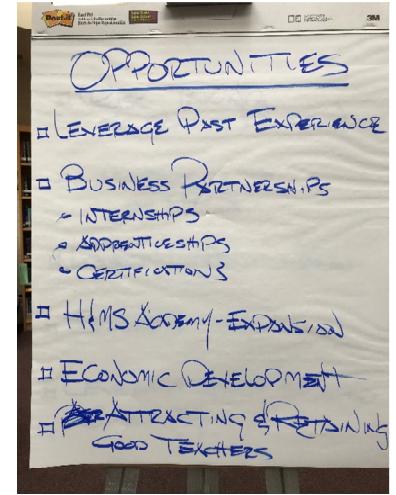 Post-it
3M
OPPORTUNITIES
LEVERAGE PAST EXPERIENCE
BUSINESS PARTNERSHIPS
- INTERNSHIPS
- APPRENTICESHIPS
- CERTIFICATIONS
H&MS ACADEMY-EXPANSION
ECONOMIC DEVELOPMENT
ATTRACTING & RETAINING
GOOD TEACHERS